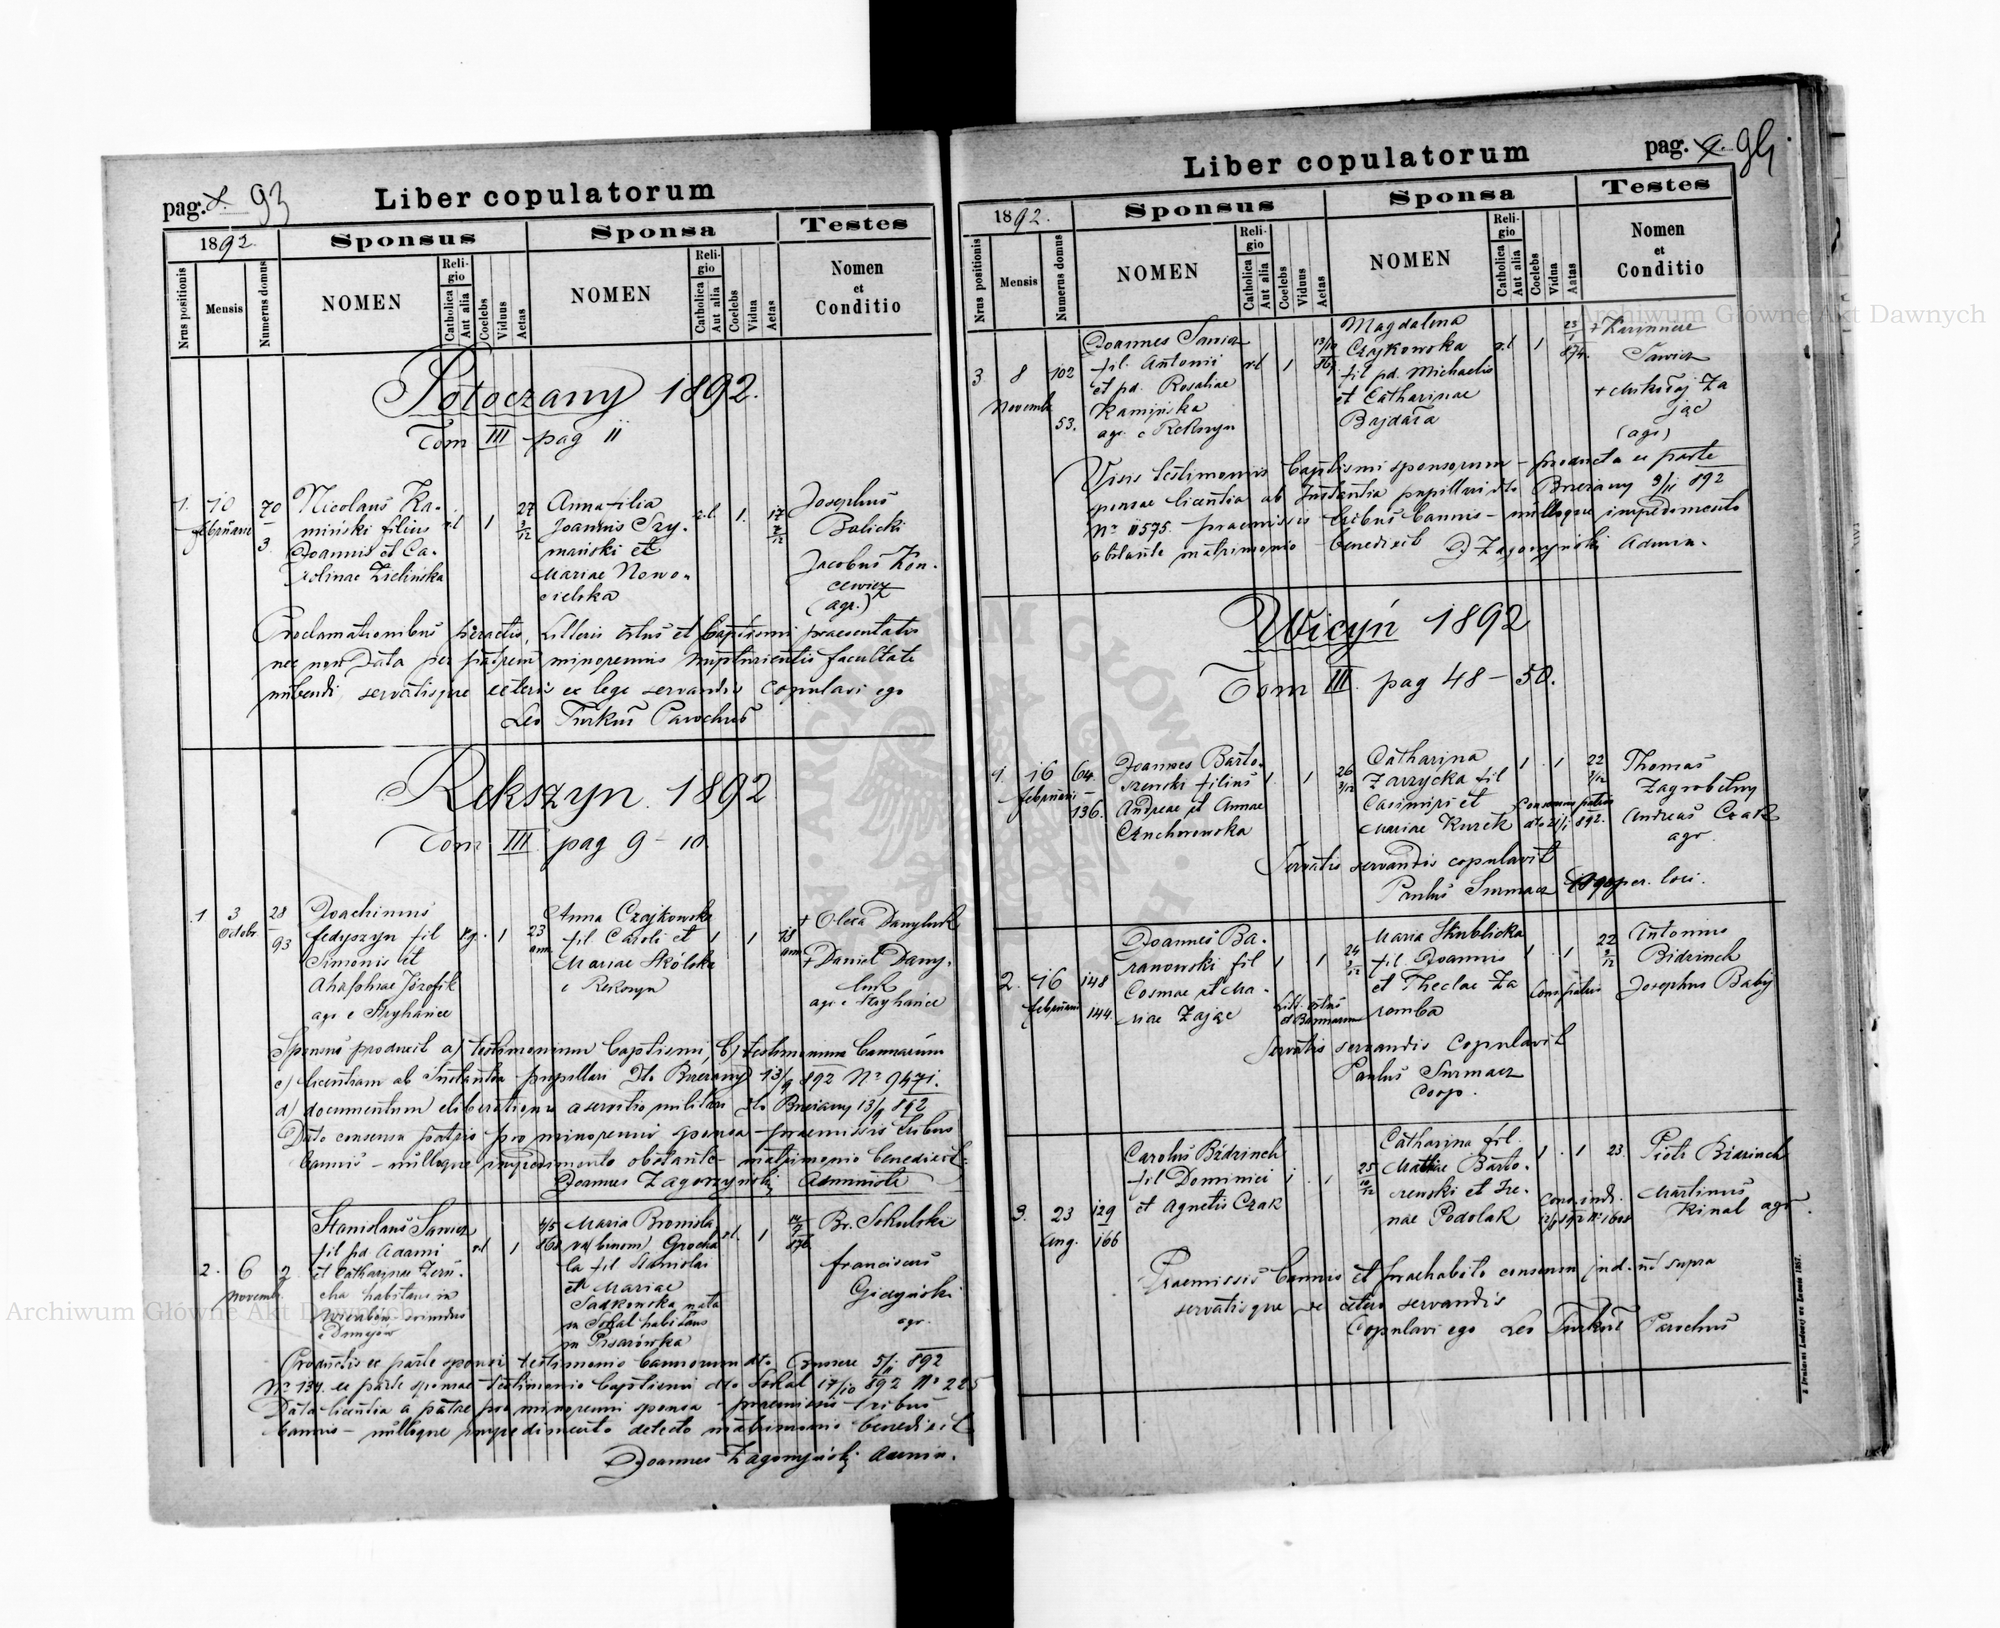 pag. 93
Liber copulatorum
1892.
Sponsus
Sponsa
Testes
Nrus positionis
Mensis
Numerus domus
NOMEN
Religio
Catholica
Aut alia
Coelebs
Viduus
Aetas
NOMEN
Religio
Catholica
Aut alia
Coelebs
Vidua
Aetas
Nomen
et
Conditio
Potoczany 1892.
Tom III pag 11
1. 10 februarii 70 3.
Nicolaus Ka-
miński filius
Joannis et Ca-
rolinae Zielińska
r.l 1 27 3/12
Anna filia
Joannis Szy-
mański et
Mariae Nowo-
sielska
r.l. 1. 17 7/12
Josephus
Balicki
Jacobus Kon-
cewicz
(agr.)
Proclamationibus peractis, Litteris ortus et baptismi praesentatis
nec non data per patrem minorennis nupturientis facultate
nubendi, servatisque ceteris ex lege servandis copulavi ego
Leo Turkuł Parochus
Rekszyn 1892
Tom III pag 9 - 10.
1 3 Octobr. 28 93
Joachimus
Fedyszyn fil
Simonis et
Ahaphiae Józofik
agr e Stryhańce
r.g. 1 23 ann
Anna Czajkowska
fil Caroli et
Mariae Skólska
e Rekszyn
1 1 18 ann
+ Olexa Danyluk
+ Daniel Dany-
luk
agr e Stryhańce
Sponsus produxit a) testimonium baptismi, b) testimonium bannorum
c) licentiam ab Instantia pupillari dto Brzezany 13/9 892 Nº 9471.
d) documentum eliberationis a servitio militari dto Brzezany 13/9 892
Dato consensu patris pro minorenni sponsa - praemissis tribus
bannis - nulloque impedimento obstante - matrimonio benedixit
Joannes Zagorzyński Administr
2. 6 Novemb. 2
Stanislaus Sawicz
fil pd Adami
et Catharinae Zeru-
cha habitans in
oriundus
e Dunajów
r.l 1 4/5 868
Maria Bronisla
va binom Grocha
la fil Stanislai
et Mariae
Sadkowska nata
in Sokal habitans
in Pisarówka
r.l. 1 876
Br. Sokulski
Franciscus
Gidzyński
agr.
Productis ex parte sponsi testimonio bannorum dto 5/11 892
Nº 134. ex parte sponsae testimonio baptismi dto Sokal 17/10 892 Nº 225
Data licentia a patre pro minorenni sponsa - praemissis tribus
bannis - nulloque impedimento detecto matrimonio benedixit
Joannes Zagorzyński Admin.
pag. 94
Liber copulatorum
1892.
Sponsus
Sponsa
Testes
Nrus positionis
Mensis
Numerus domus
NOMEN
Religio
Catholica
Aut alia
Coelebs
Viduus
Aetas
NOMEN
Religio
Catholica
Aut alia
Coelebs
Vidua
Aetas
Nomen
et
Conditio
3 8 Novemb. 102 53.
Joannes Sawicz
fil. Antonii
et pd. Rosaliae
Kamińska
agr. e Rekszyn
r.l 1 13/10 867
Magdalena
Czajkowska
fil pd. Michaelis
et Catharinae
Bajdała
r.l 1 23/1 874.
+ Sawicz
+ Mikołaj Za
jąc
(agr)
Visis testimoniis baptismi sponsorum - producta ex parte
sponsae licentia ab Instantia pupillari dto Brzezany 3/11 892
Nº 11575. - praemissis tribus bannis - nulloque impedimento
obstante matrimonio benedixit J Zagorzyński Admin.
Wicyń 1892
Tom III. pag 48 - 50.
1. 16 februarii 64. 136.
Joannes Barto-
szewski filius
Andreae et Annae
Czuchorowska
1. 1 26 3/12
Catharina
Zarzycka fil
Casimiri et
Mariae Kurek
1 1 22 3/12
Consensus patris
dto 21/1 892.
Thomas
Zagrobelny
Andreas Czak
agr.
Servatis servandis copulavit
Paulus Surmacz Cooper. loci.
2. 16 februarii 148 144.
Joannes Ba-
ranowski fil
Cosmae et Ma-
riae Zając
1 1 24 3/12
Litt. ortus
et Bannorum
Maria Skublicka
fil Joannis
et Theclae Za
romba
1 1 22 3/12
Cons patris
Antonius
Bidziuch
Josephus Babij
Servatis servandis copulavit
Paulus Surmacz
Coop.
3. 23 Aug. 129 166
Carolus Bidziuch
fil Dominici
et Agnetis Czak
1 1 25 10/12
Catharina fil.
Mathiae Barto-
szewski et Ire-
nae Podolak
1 1 23.
Cons. jud.
Piotr Bidziuch
Martinus
Kinal agr.
Praemissis bannis et praehabito consensu jud. ut supra
servatisque de cetero servandis
Copulavi ego Leo Turkuł Parochus
Archiwum Główne Akt Dawnych
Archiwum Główne Akt Dawnych